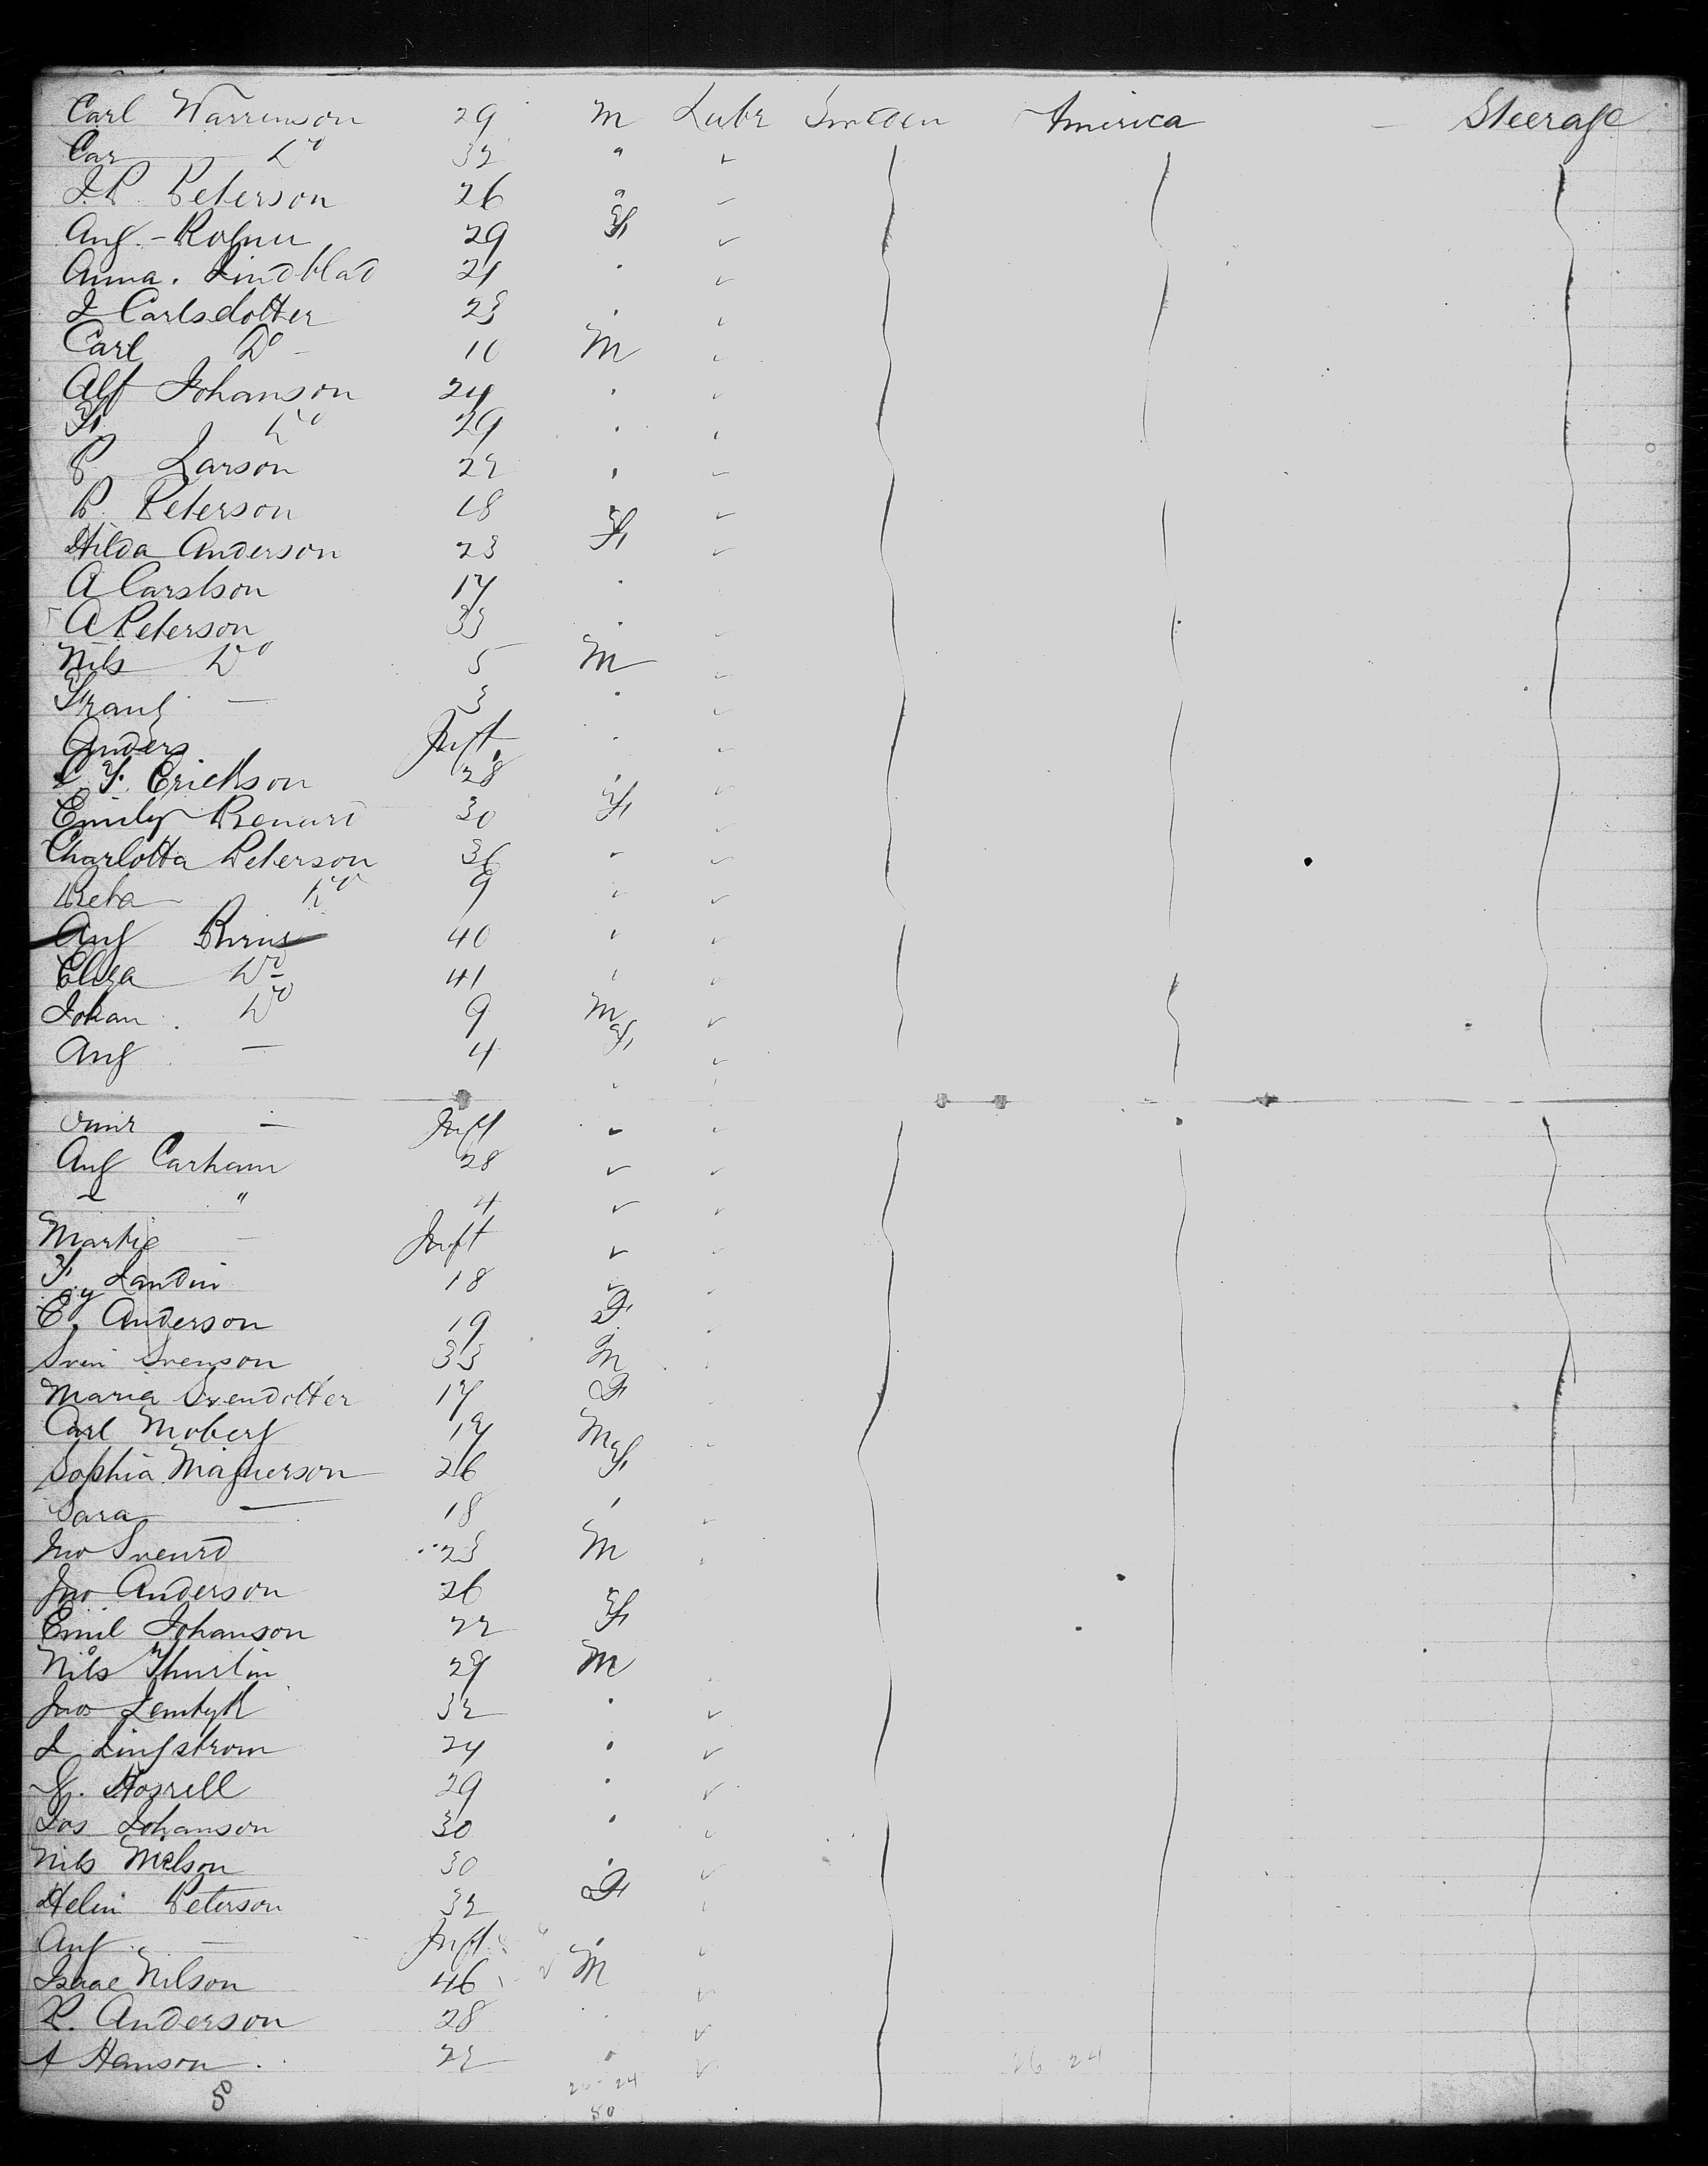 Carl Warrenson 29 M Labr Sweden America — Steerage
Car Do 32 " ✓
J.P. Peterson 26 "
Aug. - 29 F ✓
Anna. Lindblad 21
J Carlsdotter 23
Carl Do - 10 M
Alf Johanson 24
F. Do 29
P Larson 22
P. Peterson 18
Hilda Anderson 23 F
A Carlson 17
A Peterson 33
Nils Do 5 M
Frang — 3
Anders Inft
F. Erickson 28
Emily 30 F
Charlotta Peterson 36
Do 9
Aug 40
Eliza Do 41
Johan Do 9 M
Aug — 4 F
— Inft
Aug Carham 28 ✓
" 4 ✓
— Inft ✓
F. Landin 18
E. Anderson 19 F
Sven Svenson 33 M
Maria Svendotter 17 F
Carl Moberg 17 M
Sophia Magnerson 26 F
Sara — 18
Jno 23 M
Jno Anderson 26
Emil Johanson 22 F
Nils Thurlin 29 M
Jno 32 ✓
J Lingstrom 24 ✓
29 ✓
Jos Johanson 30
Nils Nelson 30 ✓
Helin Peterson 32 F
Aug — Inft
Isaac Nilson 46 M ✓
P. Anderson 28 ✓
A Hanson 22 ✓
26 24
5
26 24
50